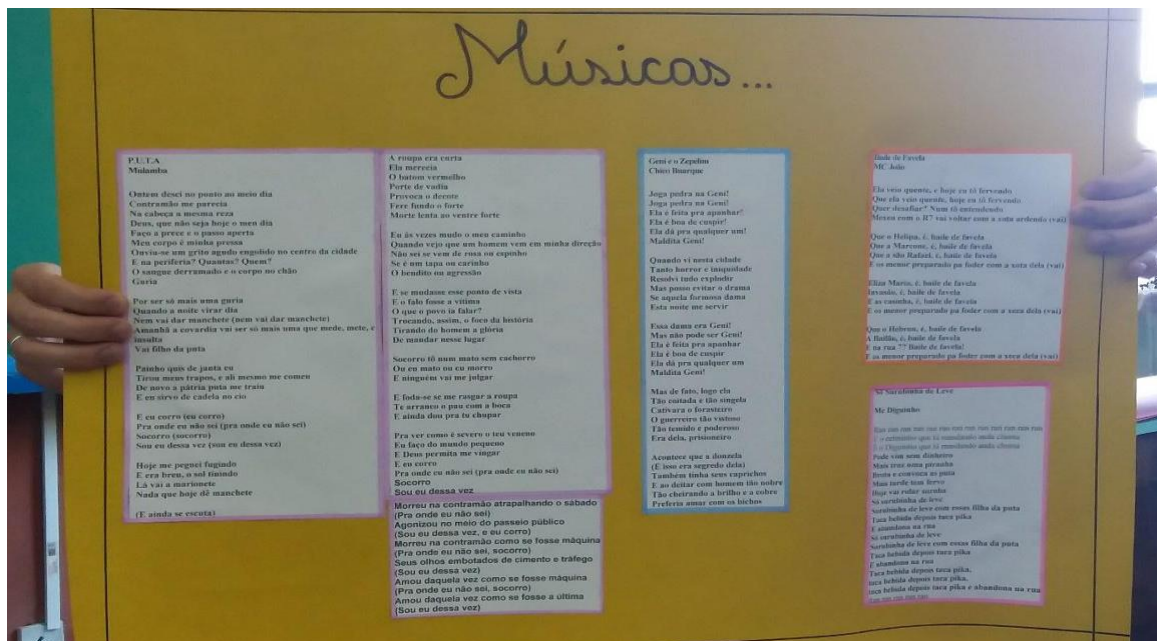 Músicas...
P.U.T.A
Mulamba
Ontem desci no ponto ao meio dia
Contramão me parecia
Na cabeça a mesma reza
Deus, que não seja hoje o meu dia
Faço a prece e o passo aperta
Meu corpo é minha pressa
Ouviu-se um grito agudo engolido no centro da cidade
E na periferia? Quantas? Quem?
O sangue derramado e o corpo no chão
Guria
Por ser só mais uma guria
Quando a noite virar dia
Nem vai dar manchete (nem vai dar manchete)
Amanhã a covardia vai ser só mais uma que mede, mete, e
insulta
Vai filho da puta
Painho quis de janta eu
Tirou meus trapos, e ali mesmo me comeu
De novo a pátria puta me traiu
E eu sirvo de cadela no cio
E eu corro (eu corro)
Pra onde eu não sei (pra onde eu não sei)
Socorro (socorro)
Sou eu dessa vez (sou eu dessa vez)
Hoje me peguei fugindo
E era breu, o sol tinindo
Lá vai a marionete
Nada que hoje dê manchete
(E ainda se escuta)
A roupa era curta
Ela merecia
O batom vermelho
Porte de vadia
Provoca o decote
Fere fundo o forte
Morte lenta ao ventre forte
Eu às vezes mudo o meu caminho
Quando vejo que um homem vem em minha direção
Não sei se vem de rosa ou espinho
Se é um tapa ou carinho
O bendito ou agressão
E se mudasse esse ponto de vista
E o falo fosse a vítima
O que o povo ia falar?
Trocando, assim, o foco da história
Tirando do homem a glória
De mandar nesse lugar
Socorro tô num mato sem cachorro
Ou eu mato ou eu morro
E ninguém vai me julgar
E foda-se se me rasgar a roupa
Te arranco o pau com a boca
E ainda dou pra tu chupar
Pra ver como é severo o teu veneno
Eu faço do mundo pequeno
E Deus permita me vingar
E eu corro
Pra onde eu não sei (pra onde eu não sei)
Socorro
Sou eu dessa vez
Morreu na contramão atrapalhando o sábado
(Pra onde eu não sei)
Agonizou no meio do passeio público
(Sou eu dessa vez, e eu corro)
Morreu na contramão como se fosse máquina
(Pra onde eu não sei, socorro)
Seus olhos embotados de cimento e tráfego
(Sou eu dessa vez)
Amou daquela vez como se fosse máquina
(Pra onde eu não sei, socorro)
Amou daquela vez como se fosse a última
(Sou eu dessa vez)
Geni e o Zepelim
Chico Buarque
Joga pedra na Geni!
Joga pedra na Geni!
Ela é feita pra apanhar!
Ela é boa de cuspir!
Ela dá pra qualquer um!
Maldita Geni!
Quando vi nesta cidade
Tanto horror e iniquidade
Resolvi tudo explodir
Mas posso evitar o drama
Se aquela formosa dama
Esta noite me servir
Essa dama era Geni!
Mas não pode ser Geni!
Ela é feita pra apanhar
Ela é boa de cuspir
Ela dá pra qualquer um
Maldita Geni!
Mas de fato, logo ela
Tão coitada e tão singela
Cativara o forasteiro
O guerreiro tão vistoso
Tão temido e poderoso
Era dela, prisioneiro
Acontece que a donzela
(E isso era segredo dela)
Também tinha seus caprichos
E ao deitar com homem tão nobre
Tão cheirando a brilho e a cobre
Preferia amar com os bichos
Baile de Favela
MC João
Ela veio quente, e hoje eu tô fervendo
Que ela veio quente, hoje eu tô fervendo
Quer desafiar? Num tô entendendo
Mexeu com o R7 vai voltar com a xota ardendo (vai)
Que o Helipa, é, baile de favela
Que a Marcone, é, baile de favela
Que a são Rafael, é, baile de favela
E os menor preparado pa foder com a xota dela (vai)
Eliza Maria, é, baile de favela
Invasão, é, baile de favela
E as casinha, é, baile de favela
E os menor preparado pa foder com a xota dela (vai)
Que o Hebron, é, baile de favela
E na rua 77 Baile de favela!
E os menor preparado pa foder com a xota dela (vai)
Só Surubinha de Leve
Mc Diguinho
Pode vim sem dinheiro
Mais traz uma piranha
Brota e convoca as puta
Mais tarde tem fervo
Hoje vai rolar suruba
Só surubinha de leve
Surubinha de leve com essas filha da puta
Taca bebida depois taca pika
E abandona na rua
Só surubinha de leve
Surubinha de leve com essas filha da puta
Taca bebida depois taca pika
E abandona na rua
Taca bebida depois taca pika,
taca bebida depois taca pika,
taca bebida depois taca pika e abandona na rua